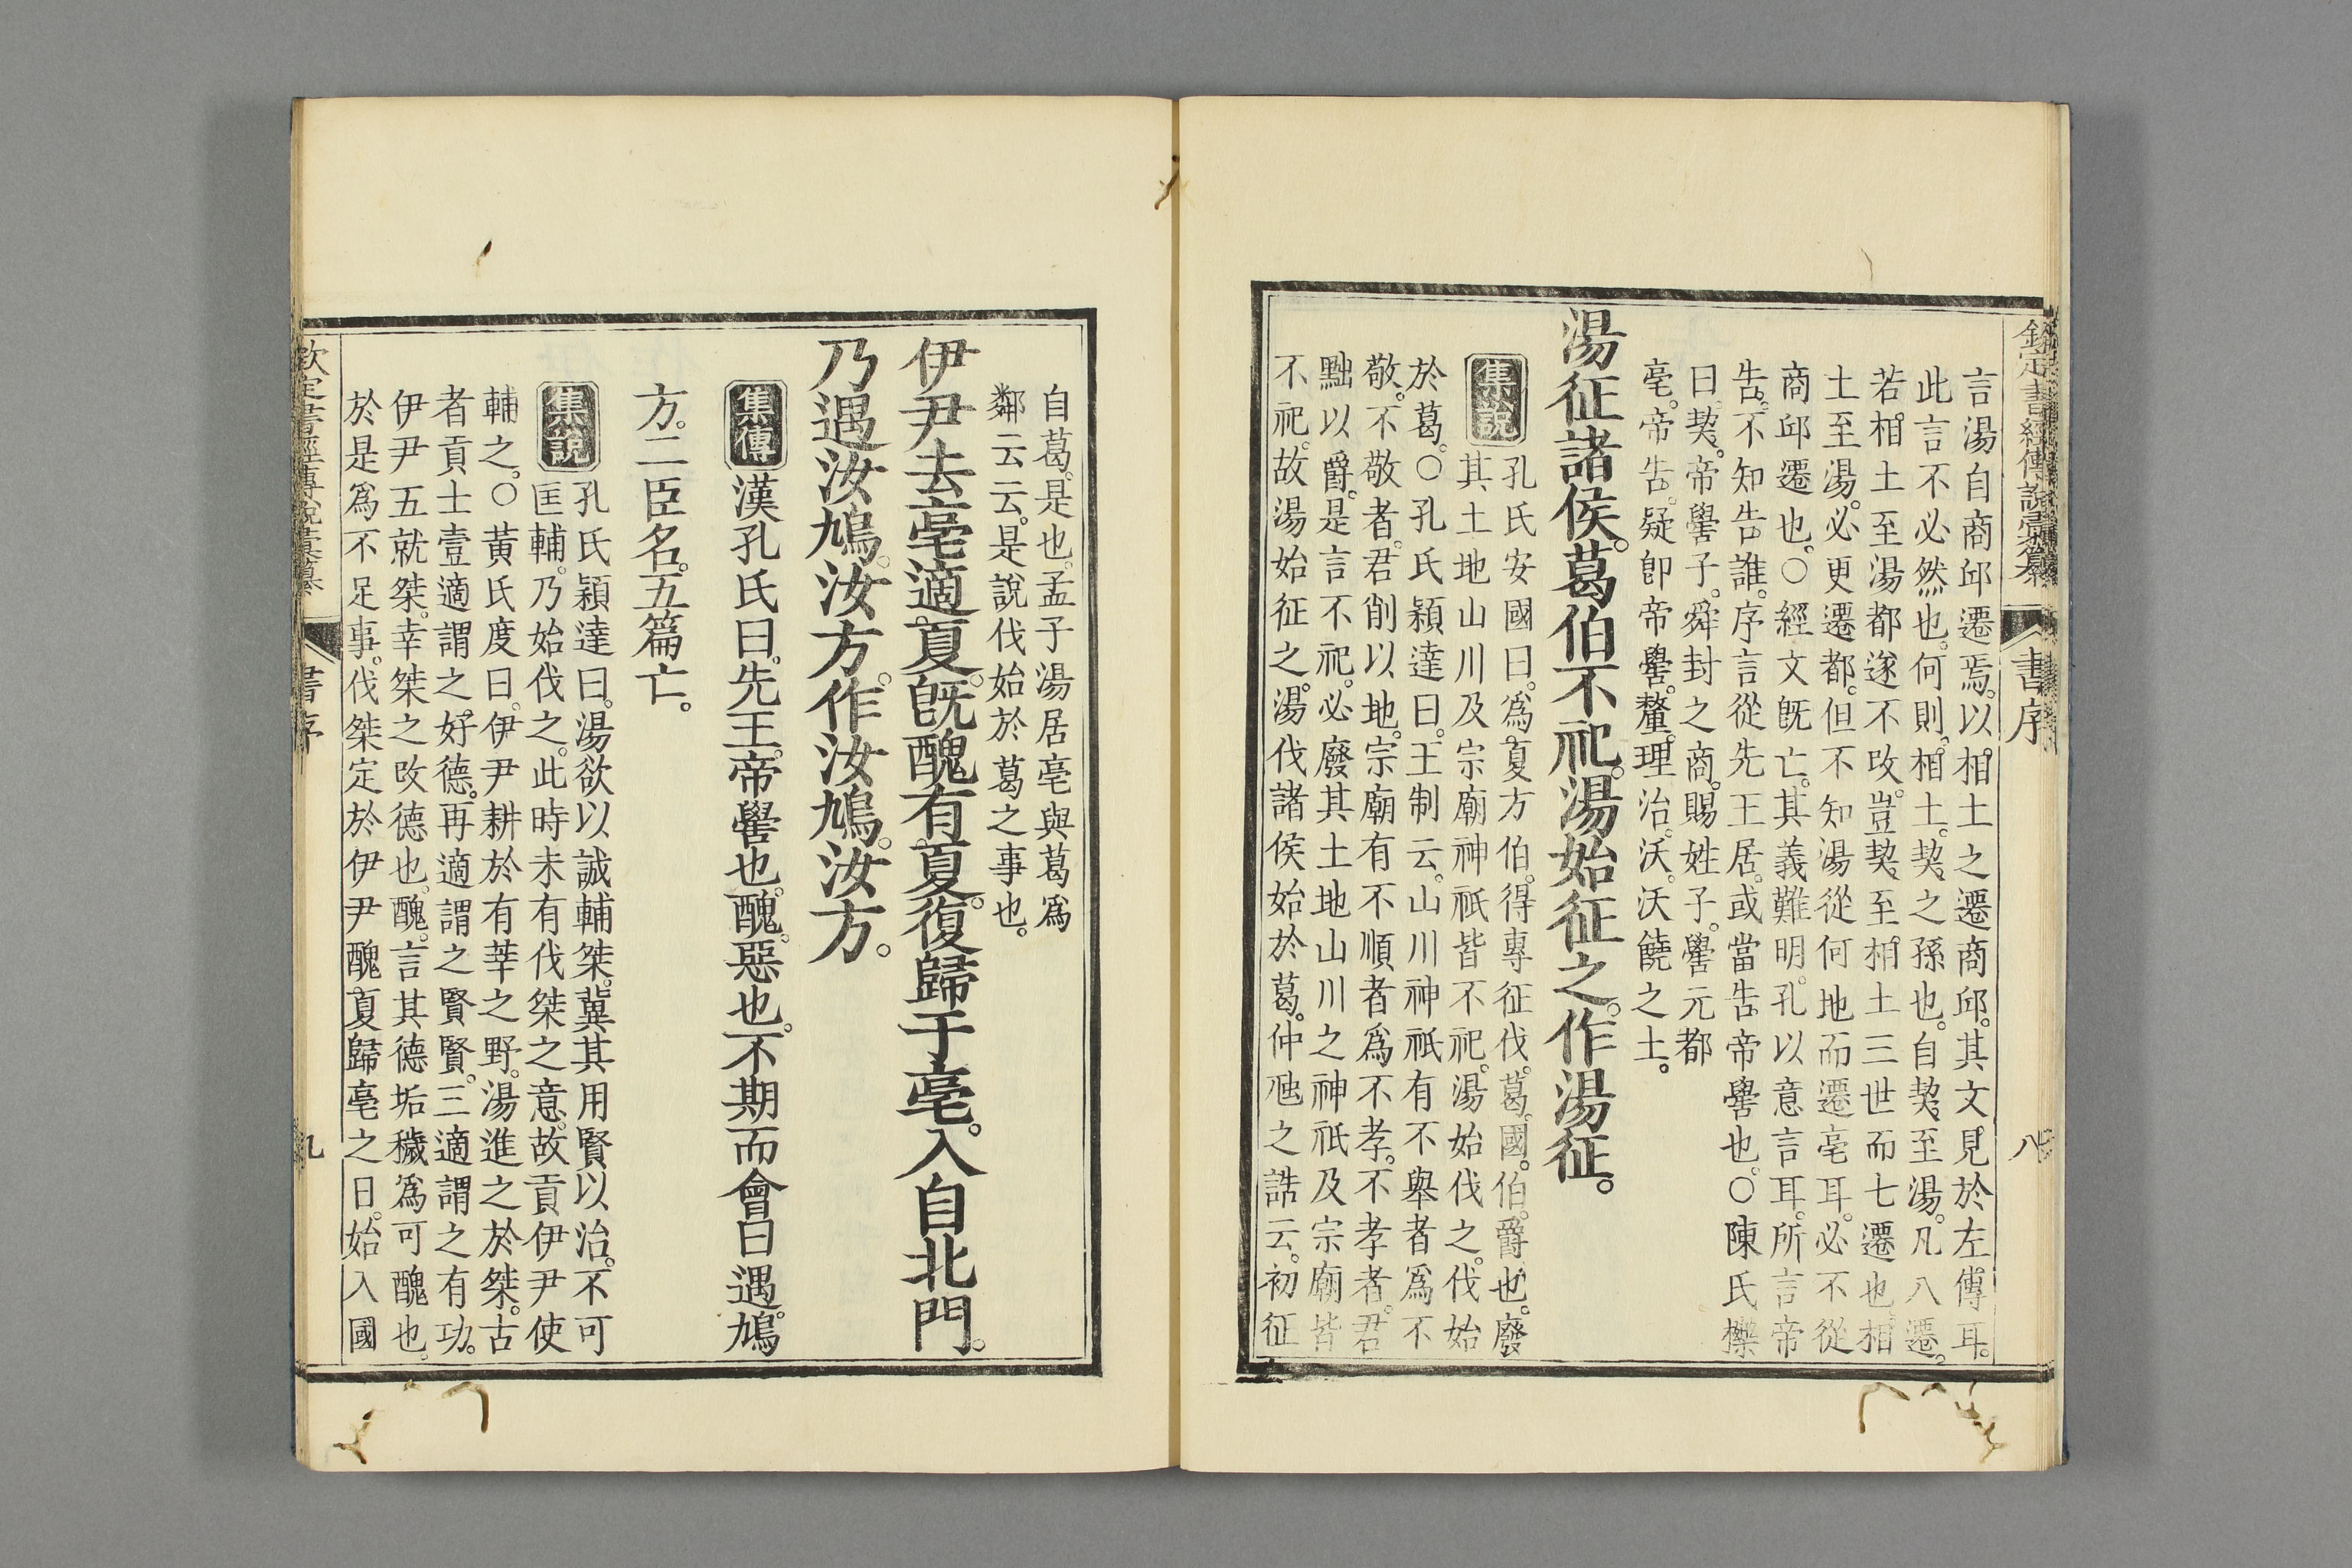 欽定書經傳說彙纂 書序 八
言湯自商邱遷焉。以相土之遷商邱。其文見於左傳耳。
此言不必然也。何則。相土。契之孫也。自契至湯。凡八遷。
若相土至湯都遂不改。豈契至相土三世而七遷也。相
土至湯。必更遷都。但不知湯從何地而遷亳耳。必不從
商邱遷也。○經文旣亡。其義難明。孔以意言耳。所言帝
告。不知告誰。序言從先王居。或當告帝嚳也。○陳氏櫟
曰。契。帝嚳子。舜封之商。賜姓子。嚳元都
亳。帝告。疑卽帝嚳。釐。理治。沃。沃饒之土。
湯征諸侯。葛伯不祀。湯始征之。作湯征。
集說 孔氏安國曰。爲夏方伯。得專征伐。葛。國。伯。爵也。廢
其土地山川及宗廟神祇皆不祀。湯始伐之。伐始
於葛。○孔氏穎達曰。王制云。山川神祇有不舉者爲不
敬。不敬者。君削以地。宗廟有不順者爲不孝。不孝者。君
黜以爵。是言不祀。必廢其土地山川之神祇及宗廟皆
不祀。故湯始征之。湯伐諸侯始於葛。仲虺之誥云。初征
自葛。是也。孟子湯居亳與葛爲
鄰云云。是說伐始於葛之事也。
伊尹去亳適夏。旣醜有夏。復歸于亳。入自北門。
乃遇汝鳩。汝方。作汝鳩。汝方。
集傳 漢孔氏曰。先王。帝嚳也。醜。惡也。不期而會曰遇。鳩
方。二臣名。五篇亡。
集說 孔氏穎達曰。湯欲以誠輔桀。冀其用賢以治。不可
匡輔。乃始伐之。此時未有伐桀之意。故貢伊尹使
輔之。○黃氏度曰。伊尹耕於有莘之野。湯進之於桀。古
者貢士壹適謂之好德。再適謂之賢賢。三適謂之有功。
伊尹五就桀。幸桀之改德也。醜。言其德垢穢爲可醜也。
於是爲不足事。伐桀定於伊尹醜夏歸亳之日。始入國
欽定書經傳說彙纂 書序 九